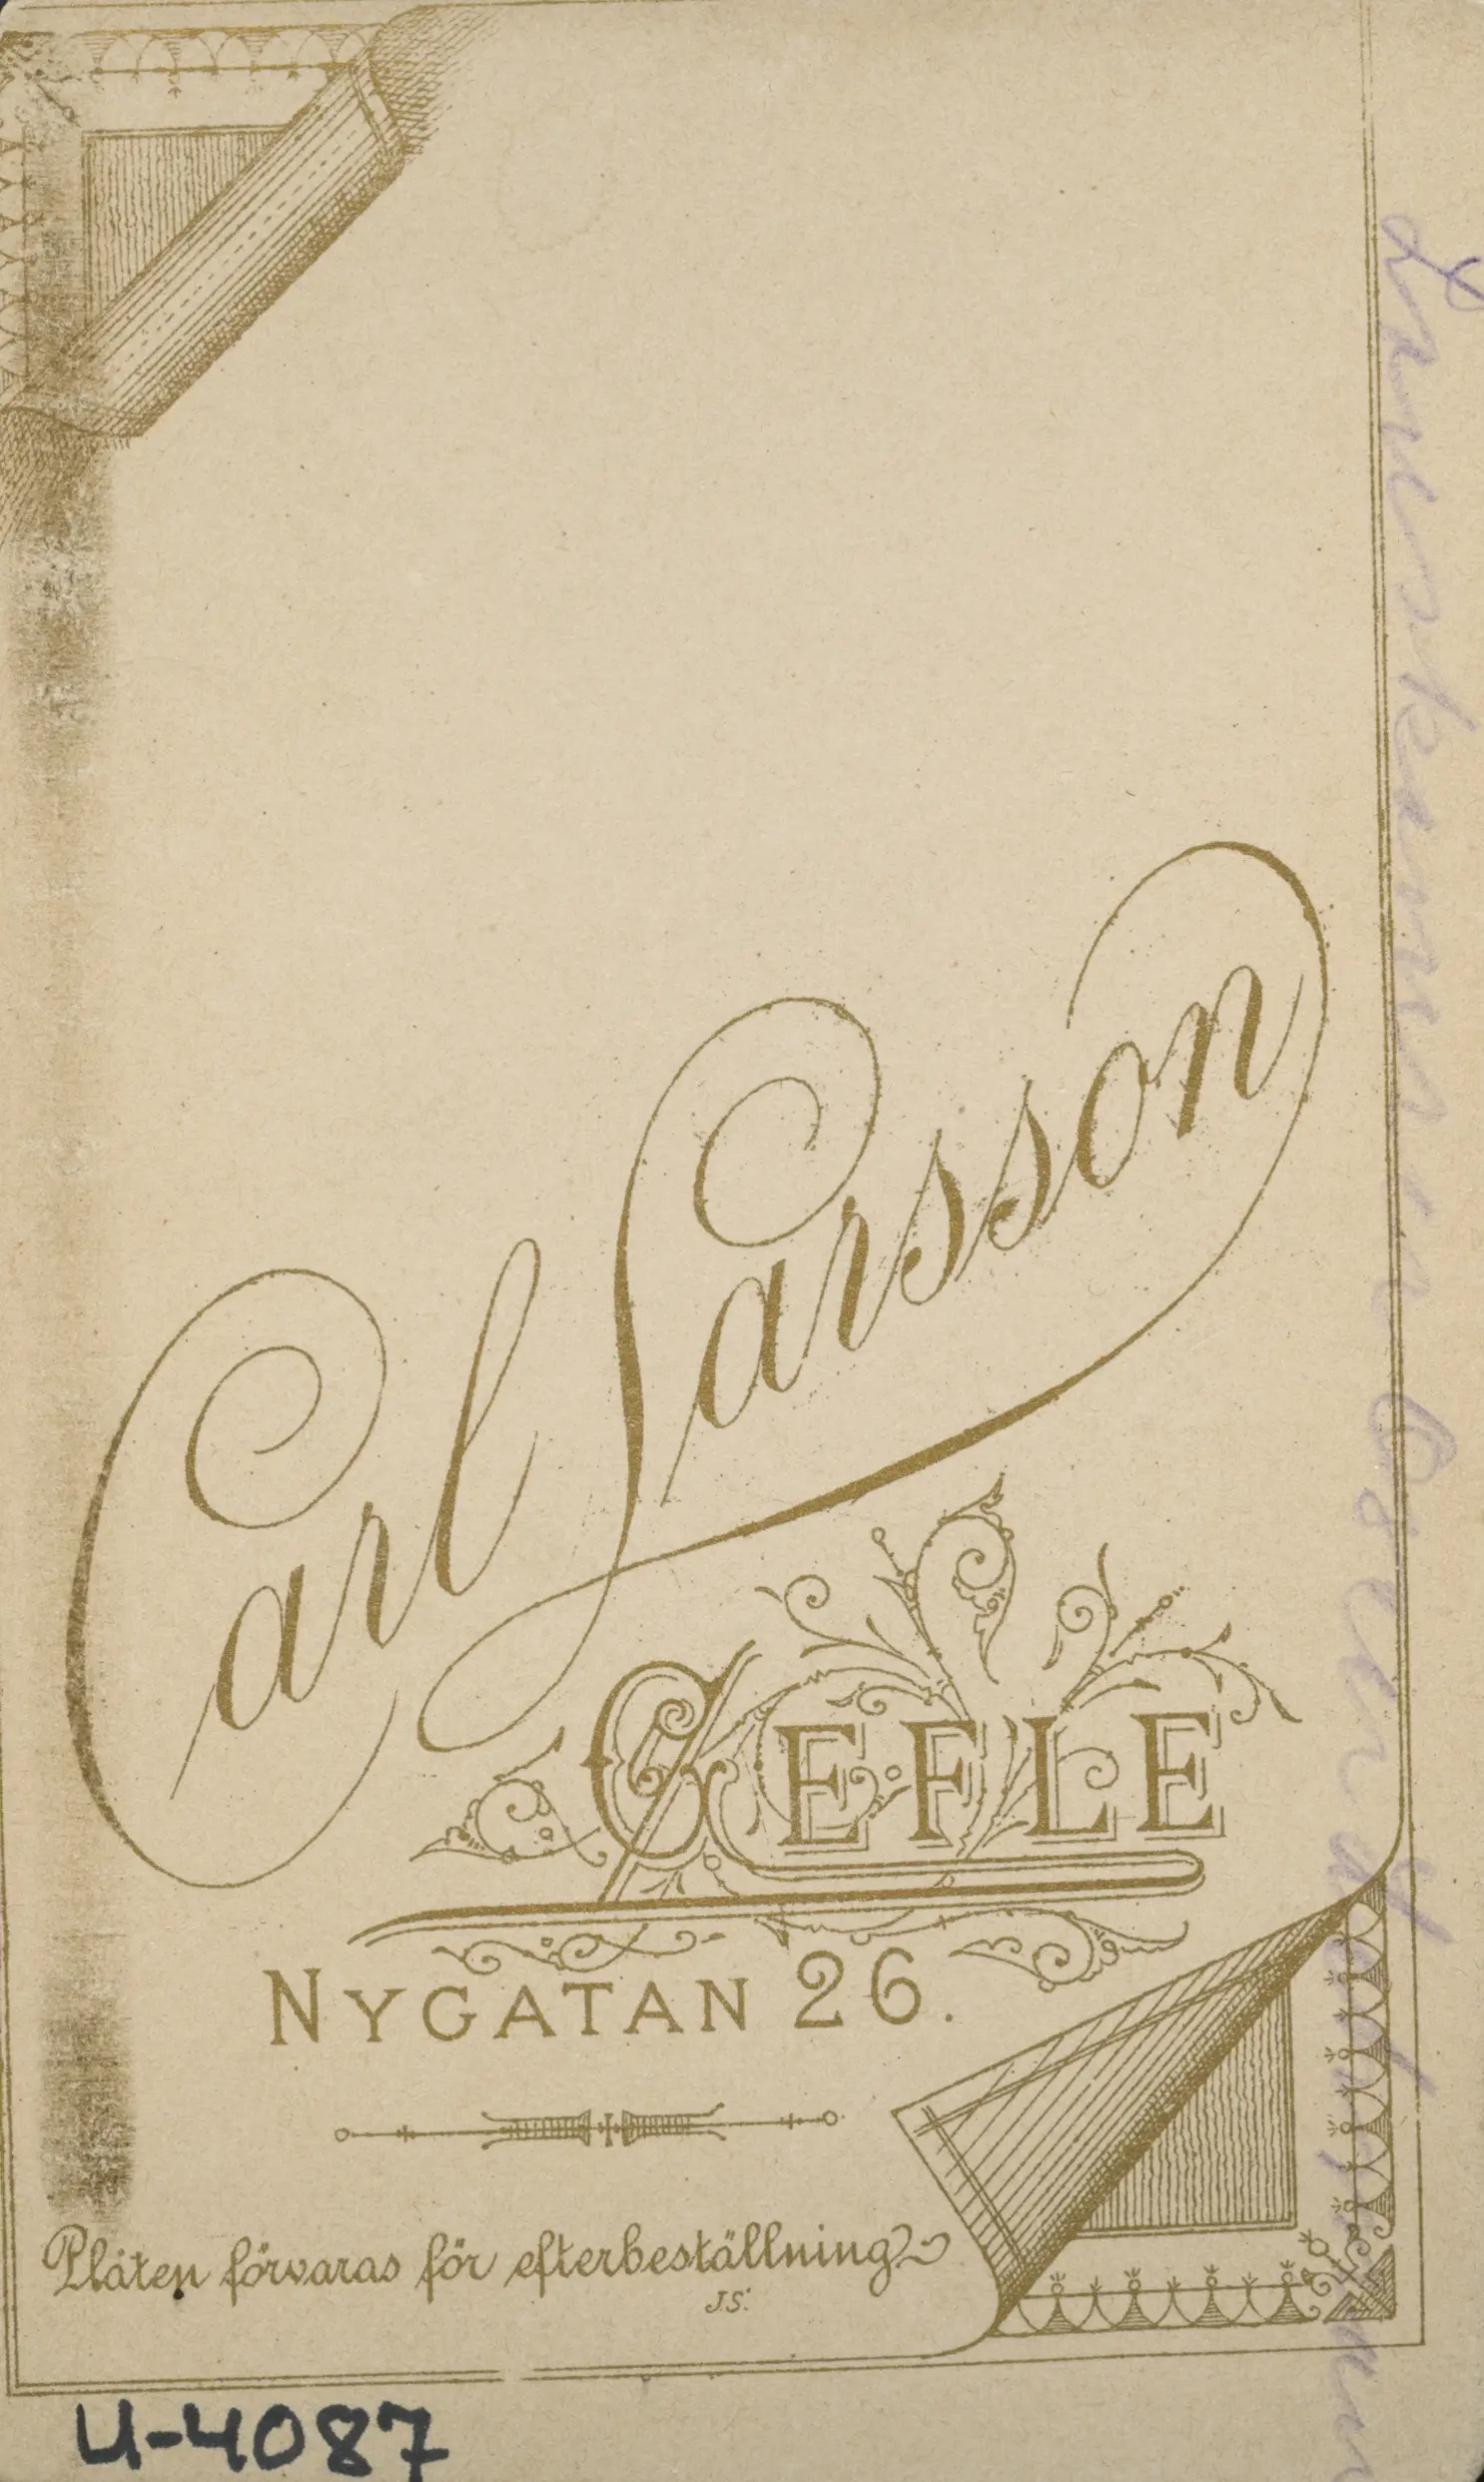 Carl Larsson
GEFLE
NYGATAN 26.
Plåten förvaras för efterbeställning
J.S.
U-4087